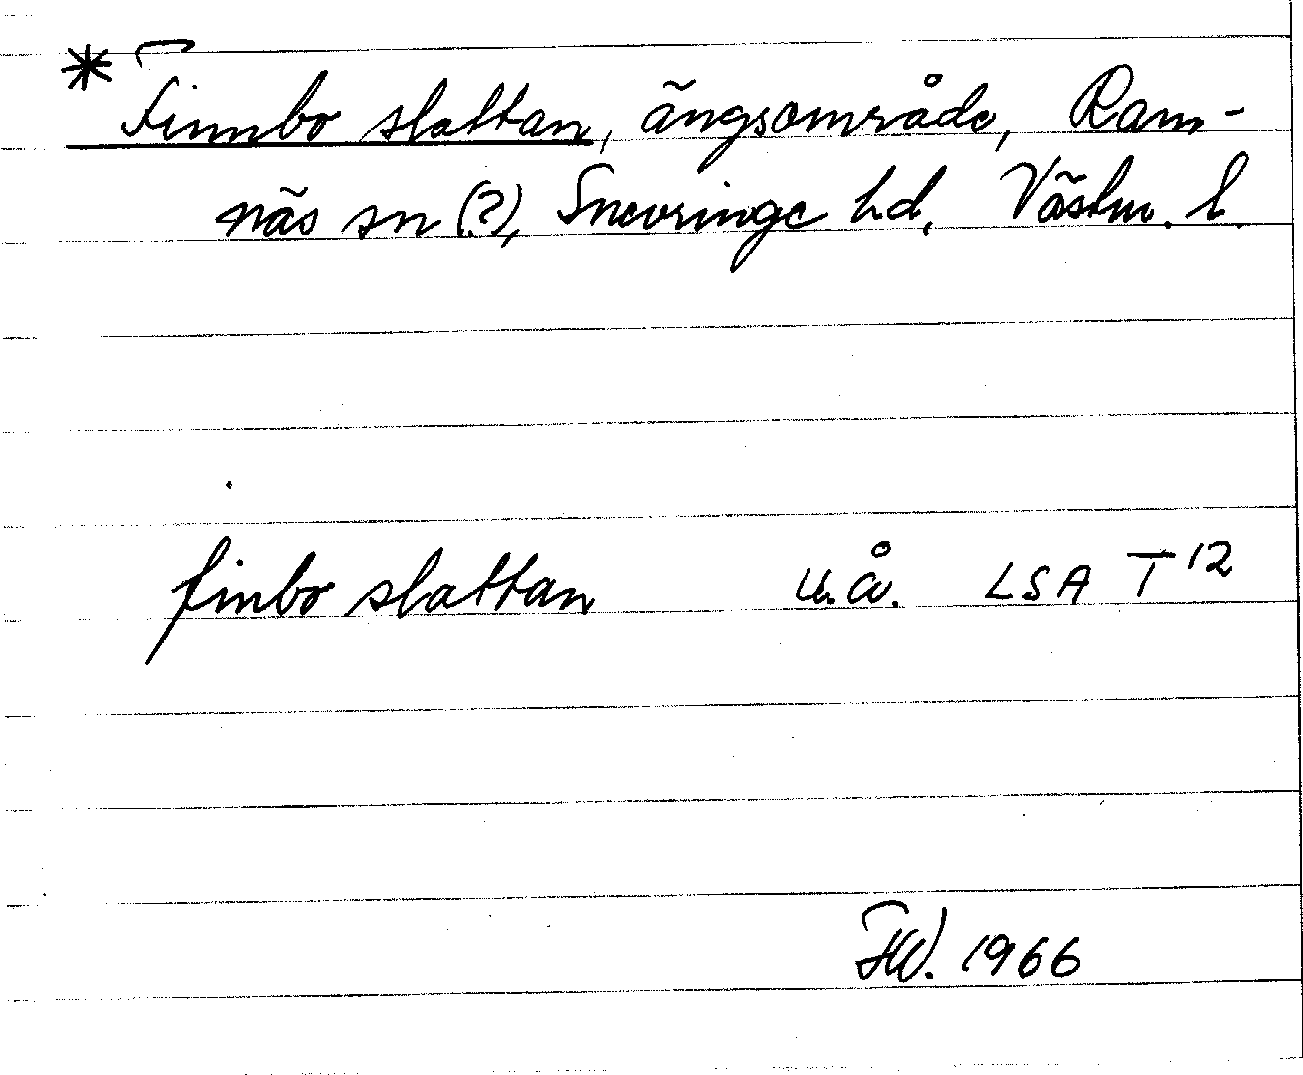 * Finnbo slattan, ängsområde, Ram-
näs sn (?), Snevringe hd, Västm. l.
finbo slattan u.å. LSA T 12
FW. 1966